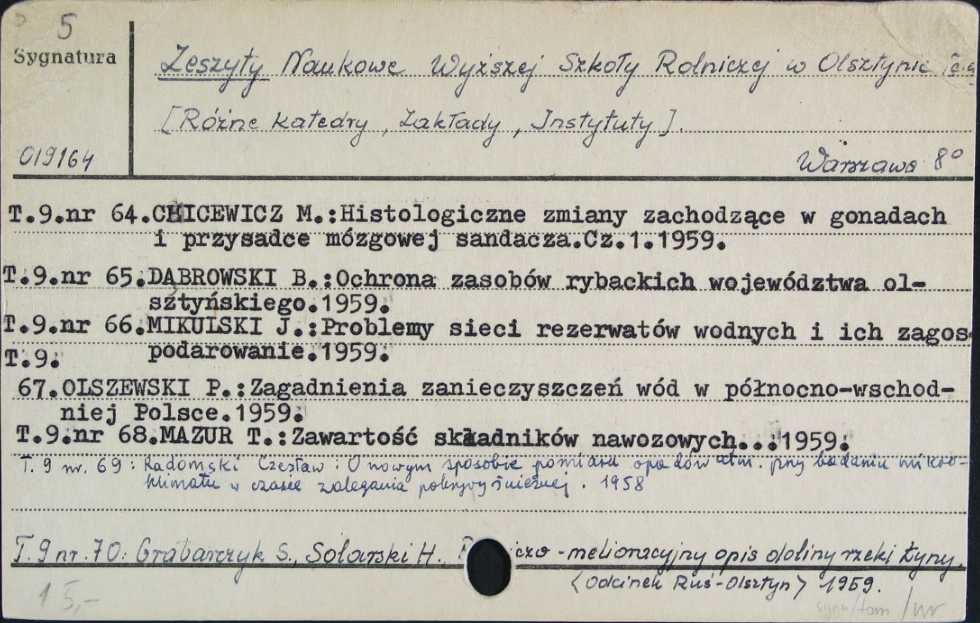 5
Sygnatura
Zeszyty Naukowe Wyższej Szkoły Rolniczej w Olsztynie
[Różne katedry, Zakłady, Instytuty].
019164
Warszawa 8°
T.9.nr 64.CHICEWICZ M.:Histologiczne zmiany zachodzące w gonadach
i przysadce mózgowej sandacza.Cz.1.1959.
T.9.nr 65.DĄBROWSKI B.:Ochrona zasobów rybackich województwa ol-
sztyńskiego.1959.
T.9.nr 66.MIKULSKI J.:Problemy sieci rezerwatów wodnych i ich zagos
podarowanie.1959.
T.9.
67.OLSZEWSKI P.:Zagadnienia zanieczyszczeń wód w północno-wschod-
niej Polsce.1959.
T.9.nr 68.MAZUR T.:Zawartość składników nawozowych...1959.
T. 9 nr. 69: Radomski Czesław: O nowym sposobie pomiaru opadów atm. przy badaniu mikro-
klimatu w czasie zalegania pokrywy śnieżnej. 1958
T. 9 nr. 70: Grabarczyk S., Solarski H. -melioracyjny opis doliny rzeki Łyny.
<Odcinek Ruś-Olsztyn> 1959.
15,-